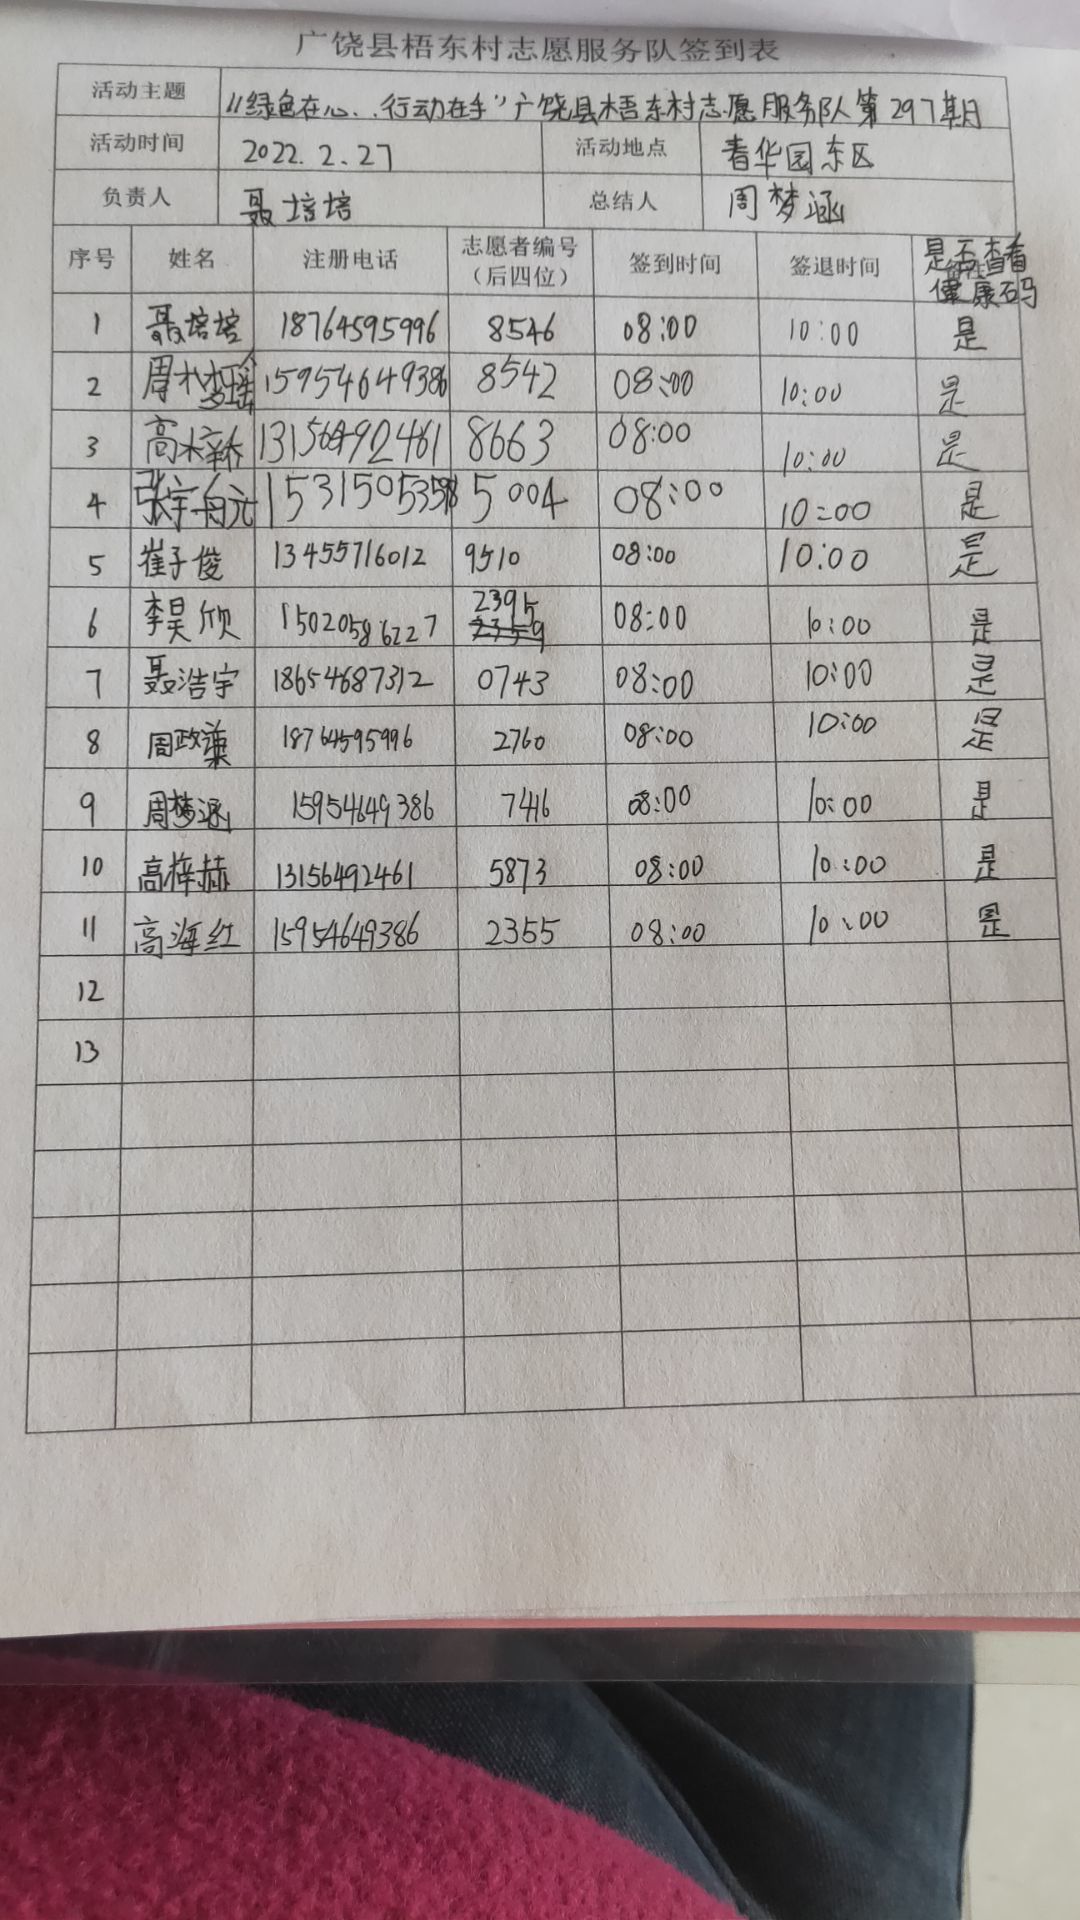 广饶县梧东村志愿服务队签到表
活动主题 “绿色在心..行动在手”广饶县梧东村志愿服务队第297期
活动时间 2022.2.27 活动地点 春华园东区
负责人 聂培培 总结人 周梦涵
序号 姓名 注册电话 志愿者编号(后四位) 签到时间 签退时间 是否查看健康码
1 聂培培 18764595996 8546 08:00 10:00 是
2 周梦瑶 15954649386 8542 08:00 10:00 是
3 高梓 13156492461 8663 08:00 10:00 是
4 张宇 1531505359 5004 08:00 10:00 是
5 崔子俊 13455716012 9510 08:00 10:00 是
6 李昊欣 15020586227 2395 08:00 10:00 是
7 聂浩宇 18654687312 0743 08:00 10:00 是
8 周政 18764595996 2760 08:00 10:00 是
9 周梦涵 15954649386 7416 08:00 10:00 是
10 高梓赫 13156492461 5873 08:00 10:00 是
11 高海红 15954649386 2355 08:00 10:00 是
12
13